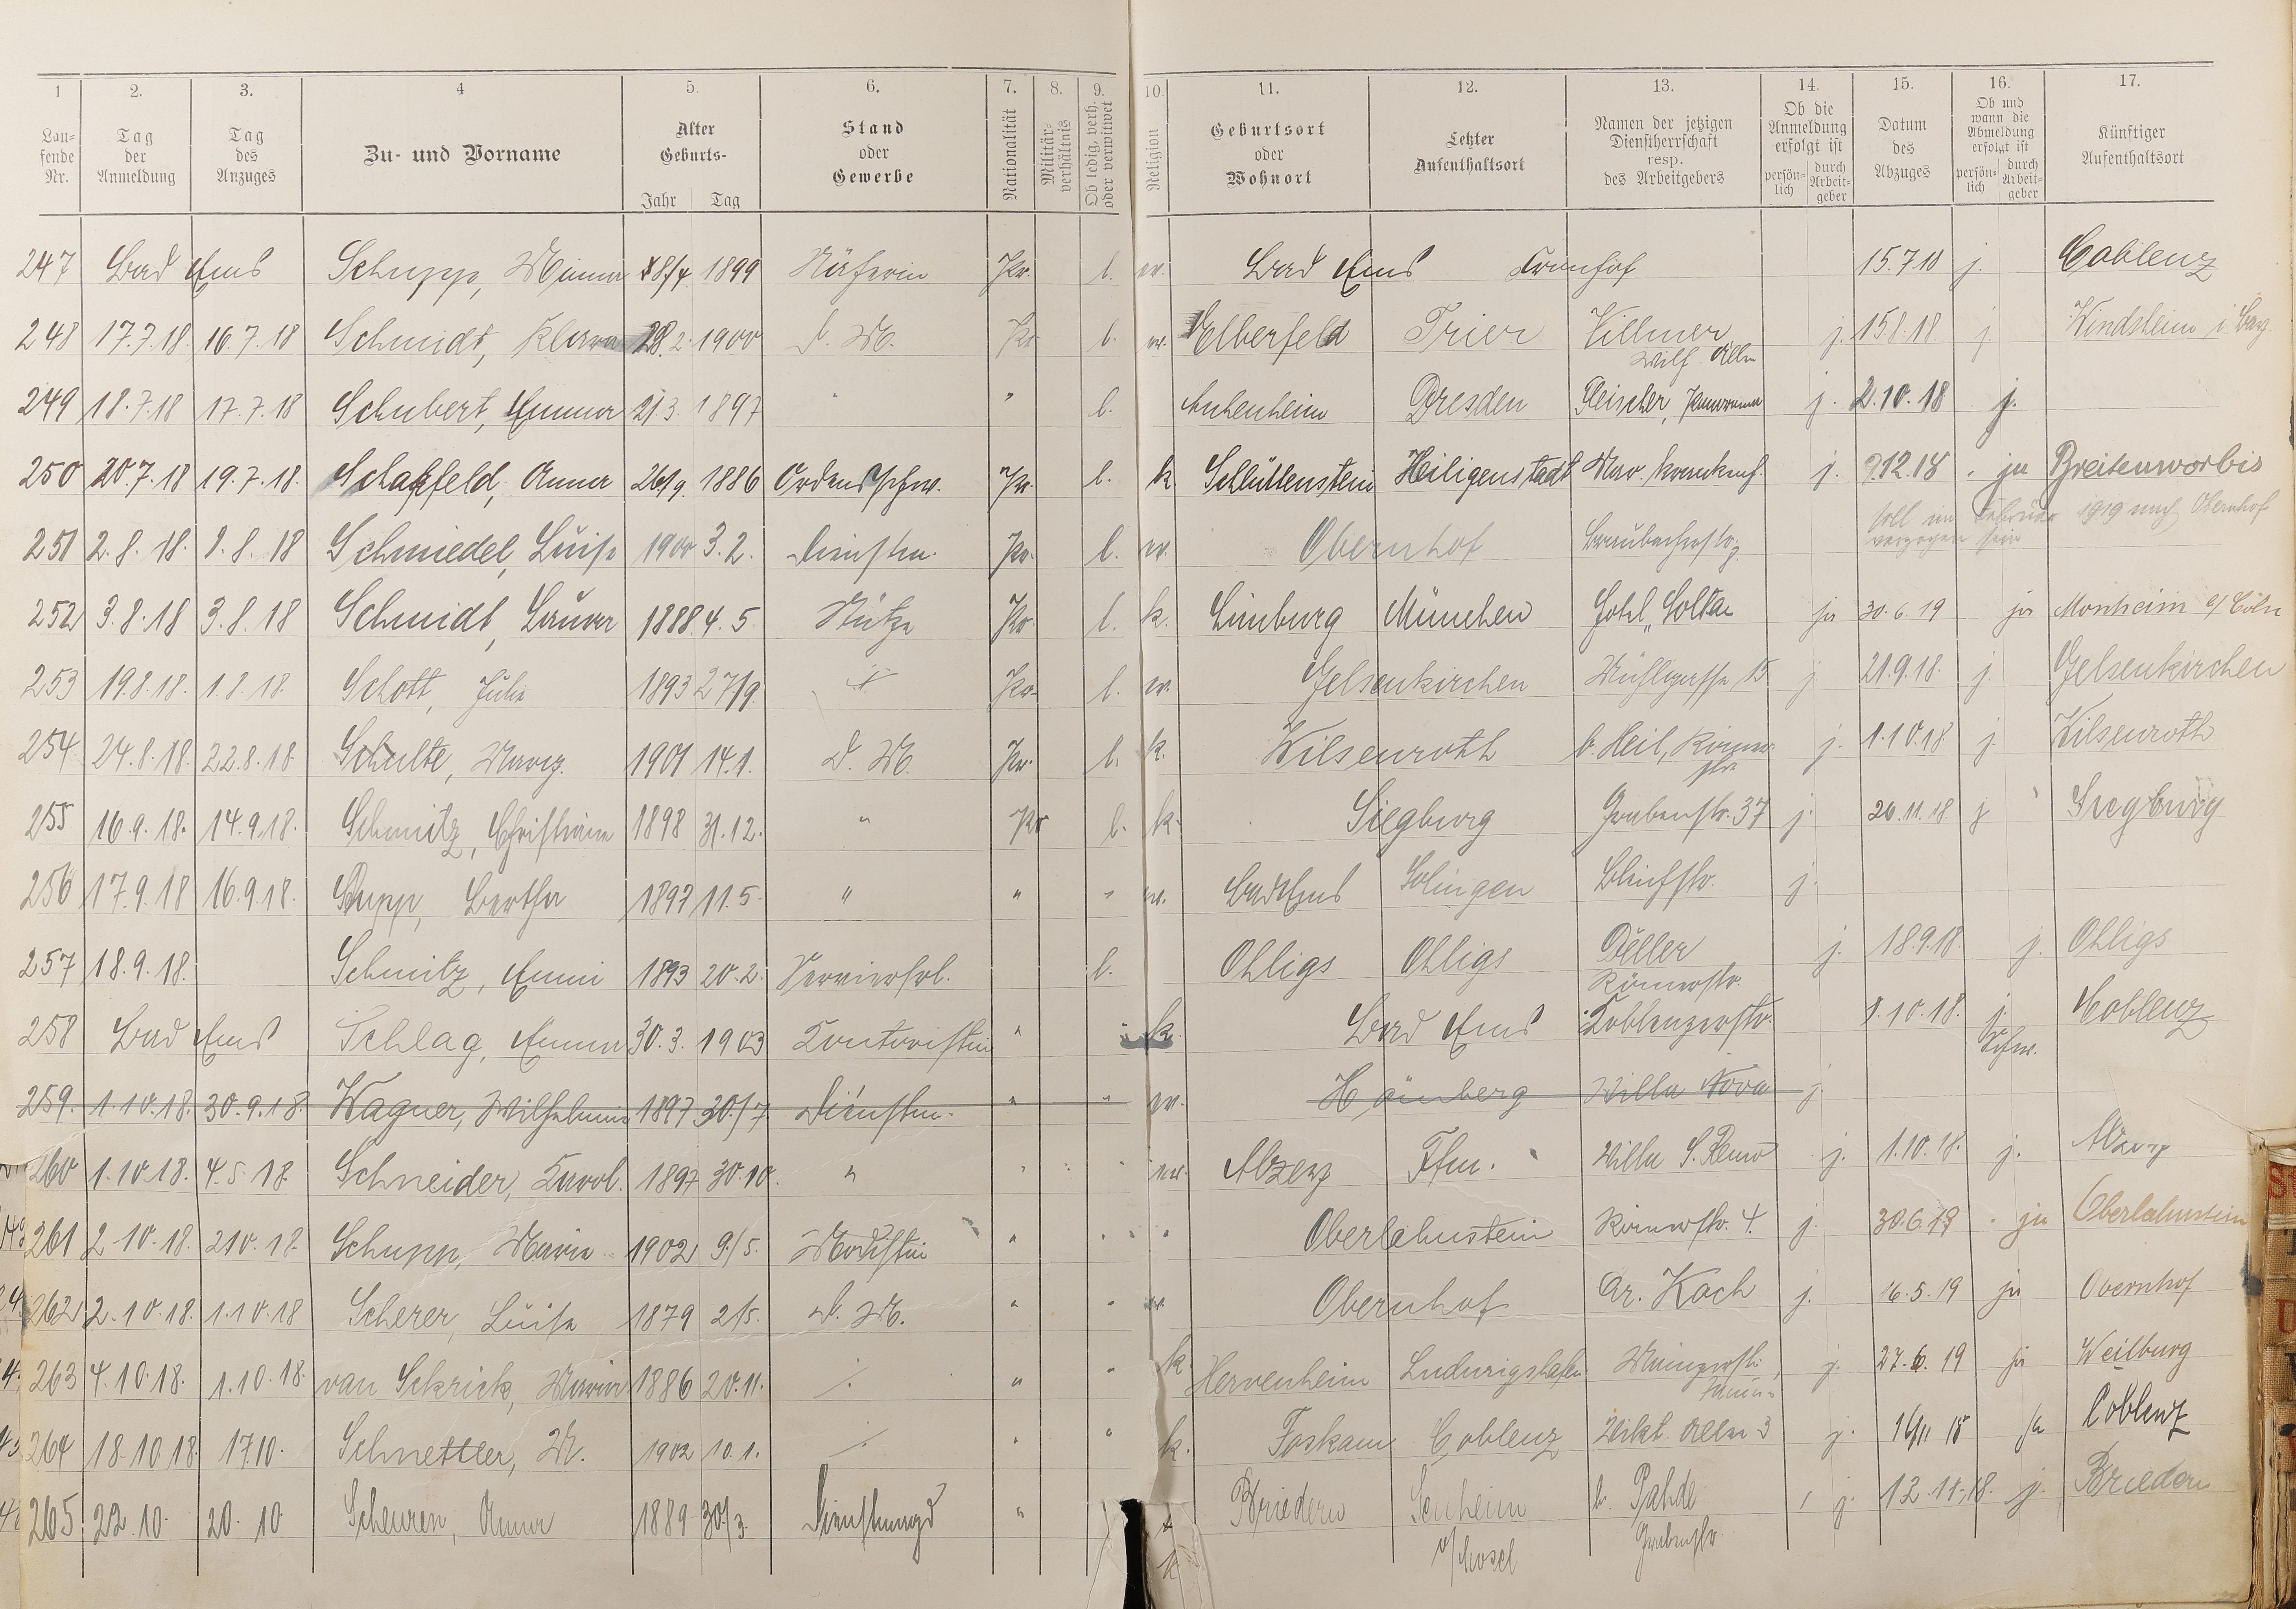 1 2. 3. 4 5. 6. 7. 8. 9. 10. 11. 12. 13. 14. 15. 16. 17.
Lau-fende Nr. Tag der Anmeldung Tag des Anzuges Zu- und Vorname Alter Geburts- Jahr Tag Stand oder Gewerbe Nationalität Militär-verhältnis Ob ledig, verh. oder verwitwet Religion Geburtsort oder Wohnort Letzter Aufenthaltsort Namen der jetzigen Dienstherrschaft resp. des Arbeitgebers Ob die Anmeldung erfolgt ist persön-lich durch Arbeit-geber Datum des Abzuges Ob und wann die Abmeldung erfolgt ist persön-lich durch Arbeit-geber Künftiger Aufenthaltsort
247 Bad Ems Schupp, Minna 8/4. 1899 Näherin Pr. l. ev. Bad Ems 15.7.18 j. Coblenz
248 17.7.18. 16.7.18 Schmidt, Klara 28.2. 1900 D. M. Pr. l. ev. Elberfeld Trier Villmer j. 15.8.18. j. Windsheim i. Bay.
Wilh. Allee
249 18.7.18 17.7.18 Schubert, Emma 21.3. 1897 " l. Dresden Fleischer, j. 2.10.18 j.
250 20.7.18 19.7.18. Schakfeld, Anna 26/9 1886 Ordensschw. Pr. l. k. Schlüttenstein Heiligenstadt Mar. Krankenh. j. 9.12.18 ja Breitenworbis
251 2.8.18. 1.8.18 Schmiedel, Luise 1900 3.2. Dienstm. Pr. l. ev. Obernhof soll im Februar 1919 nach Obernhof
verzogen sein
252 3.8.18 3.8.18 Schmidt, Laura 1888 4.5 Stütze Pr. l. k. Limburg München Hotel „Soltau ja 30.6.19 ja Monheim b/ Cöln
253 19.8.18. 1.8.18. Schott, Julie 1893 27/9. Pr. l. ev. Gelsenkirchen Mühlgasse 15 j. 21.9.18. j. Gelsenkirchen
254 24.8.18. 22.8.18. Schulte, Marg. 1901 14.1. D. M. Pr. l. k. Wilsenroth b. Heil, Römer j. 1.10.18 j. Wilsenroth
str.
255 16.9.18. 14.9.18. Schmitz, Christine 1898 31.12. " Pr l. k. Siegburg Grabenstr. 37 j. 20.11.18. j Siegburg
256 17.9.18 16.9.18. Schupp, Bertha 1897 11.5. " " " ev. Bad Ems Solingen Bleichstr. j.
257 18.9.18. Schmitz, Emmi 1893 20.2. l. Ohligs Ohligs Düller j. 18.9.18. j. Ohligs
Römerstr.
258 Bad Ems Schlag, Emma 30.3. 1903 Kontoristin " k. Bad Ems Koblenzerstr. 1.10.18. j. Coblenz
259. 1.10.18. 30.9.18. Wagner, Wilhelmine 1897 30./7 Dienstm. " " ev. Homberg Villa Nova j.
260 1.10.18. 4.5.18. Schneider, Karol. 1897 30.10. " ev. Alzey Ffm. Villa S. Remo j. 1.10.18. j. Alzey
261 2.10.18. 2.10.18. Schupp, Maria 1902 9./5. Modistin " " " Oberlahnstein Römerstr. 4. j. 30.6.19 ja Oberlahnstein
262 2.10.18. 1.10.18 Scherer, Luise 1879 2/5. D. M. " " ev. Obernhof Dr. Koch j. 16.5.19 ja Obernhof
263 4.10.18. 1.10.18. van Schrick, Maria 1886 20.11. " " k. Hervenheim Ludwigshafen Mainzerstr. j. 27.6.19 ja Weilburg
264 18.10.18. 17.10. Schnettler, M. 1902 10.1. " " k. Foskam Coblenz Vikt. Allee 3 j. 16/11 18 ja Coblenz
265 22.10. 20.10 Scheuren, Anna 1889 30/3. Dienstmagd " Briedern Senheim b. Pahde j. 12.11.18. j. Briedern
a/Mosel Grabenstr.